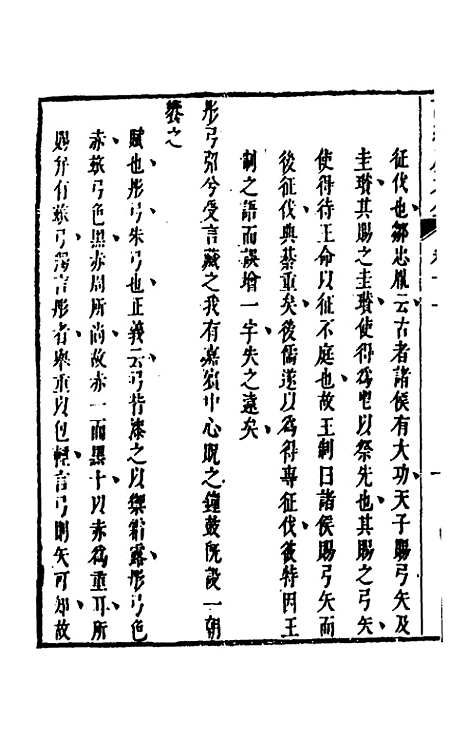 征伐也鄒忠胤云古者諸侯有大功天子賜弓矢及
圭瓚其賜之圭瓚使得為鬯以祭先也其賜之弓矢
使得待王命以征不庭也故王制曰諸侯賜弓矢而
後征伐典綦重矣後儒遂以為得專征伐彼特因王
制之語而誤增一字失之遠矣
彤弓弨兮受言藏之我有嘉賓中心貺之鐘鼓既設一朝
饗之
賦也彤弓朱弓也正義云弓皆漆之以禦霜露彤弓色
赤玈弓色黑赤周所尚故赤一而黑十以赤為重耳所
賜弁有玈弓獨言彤者舉重以包輕言弓則矢可知故